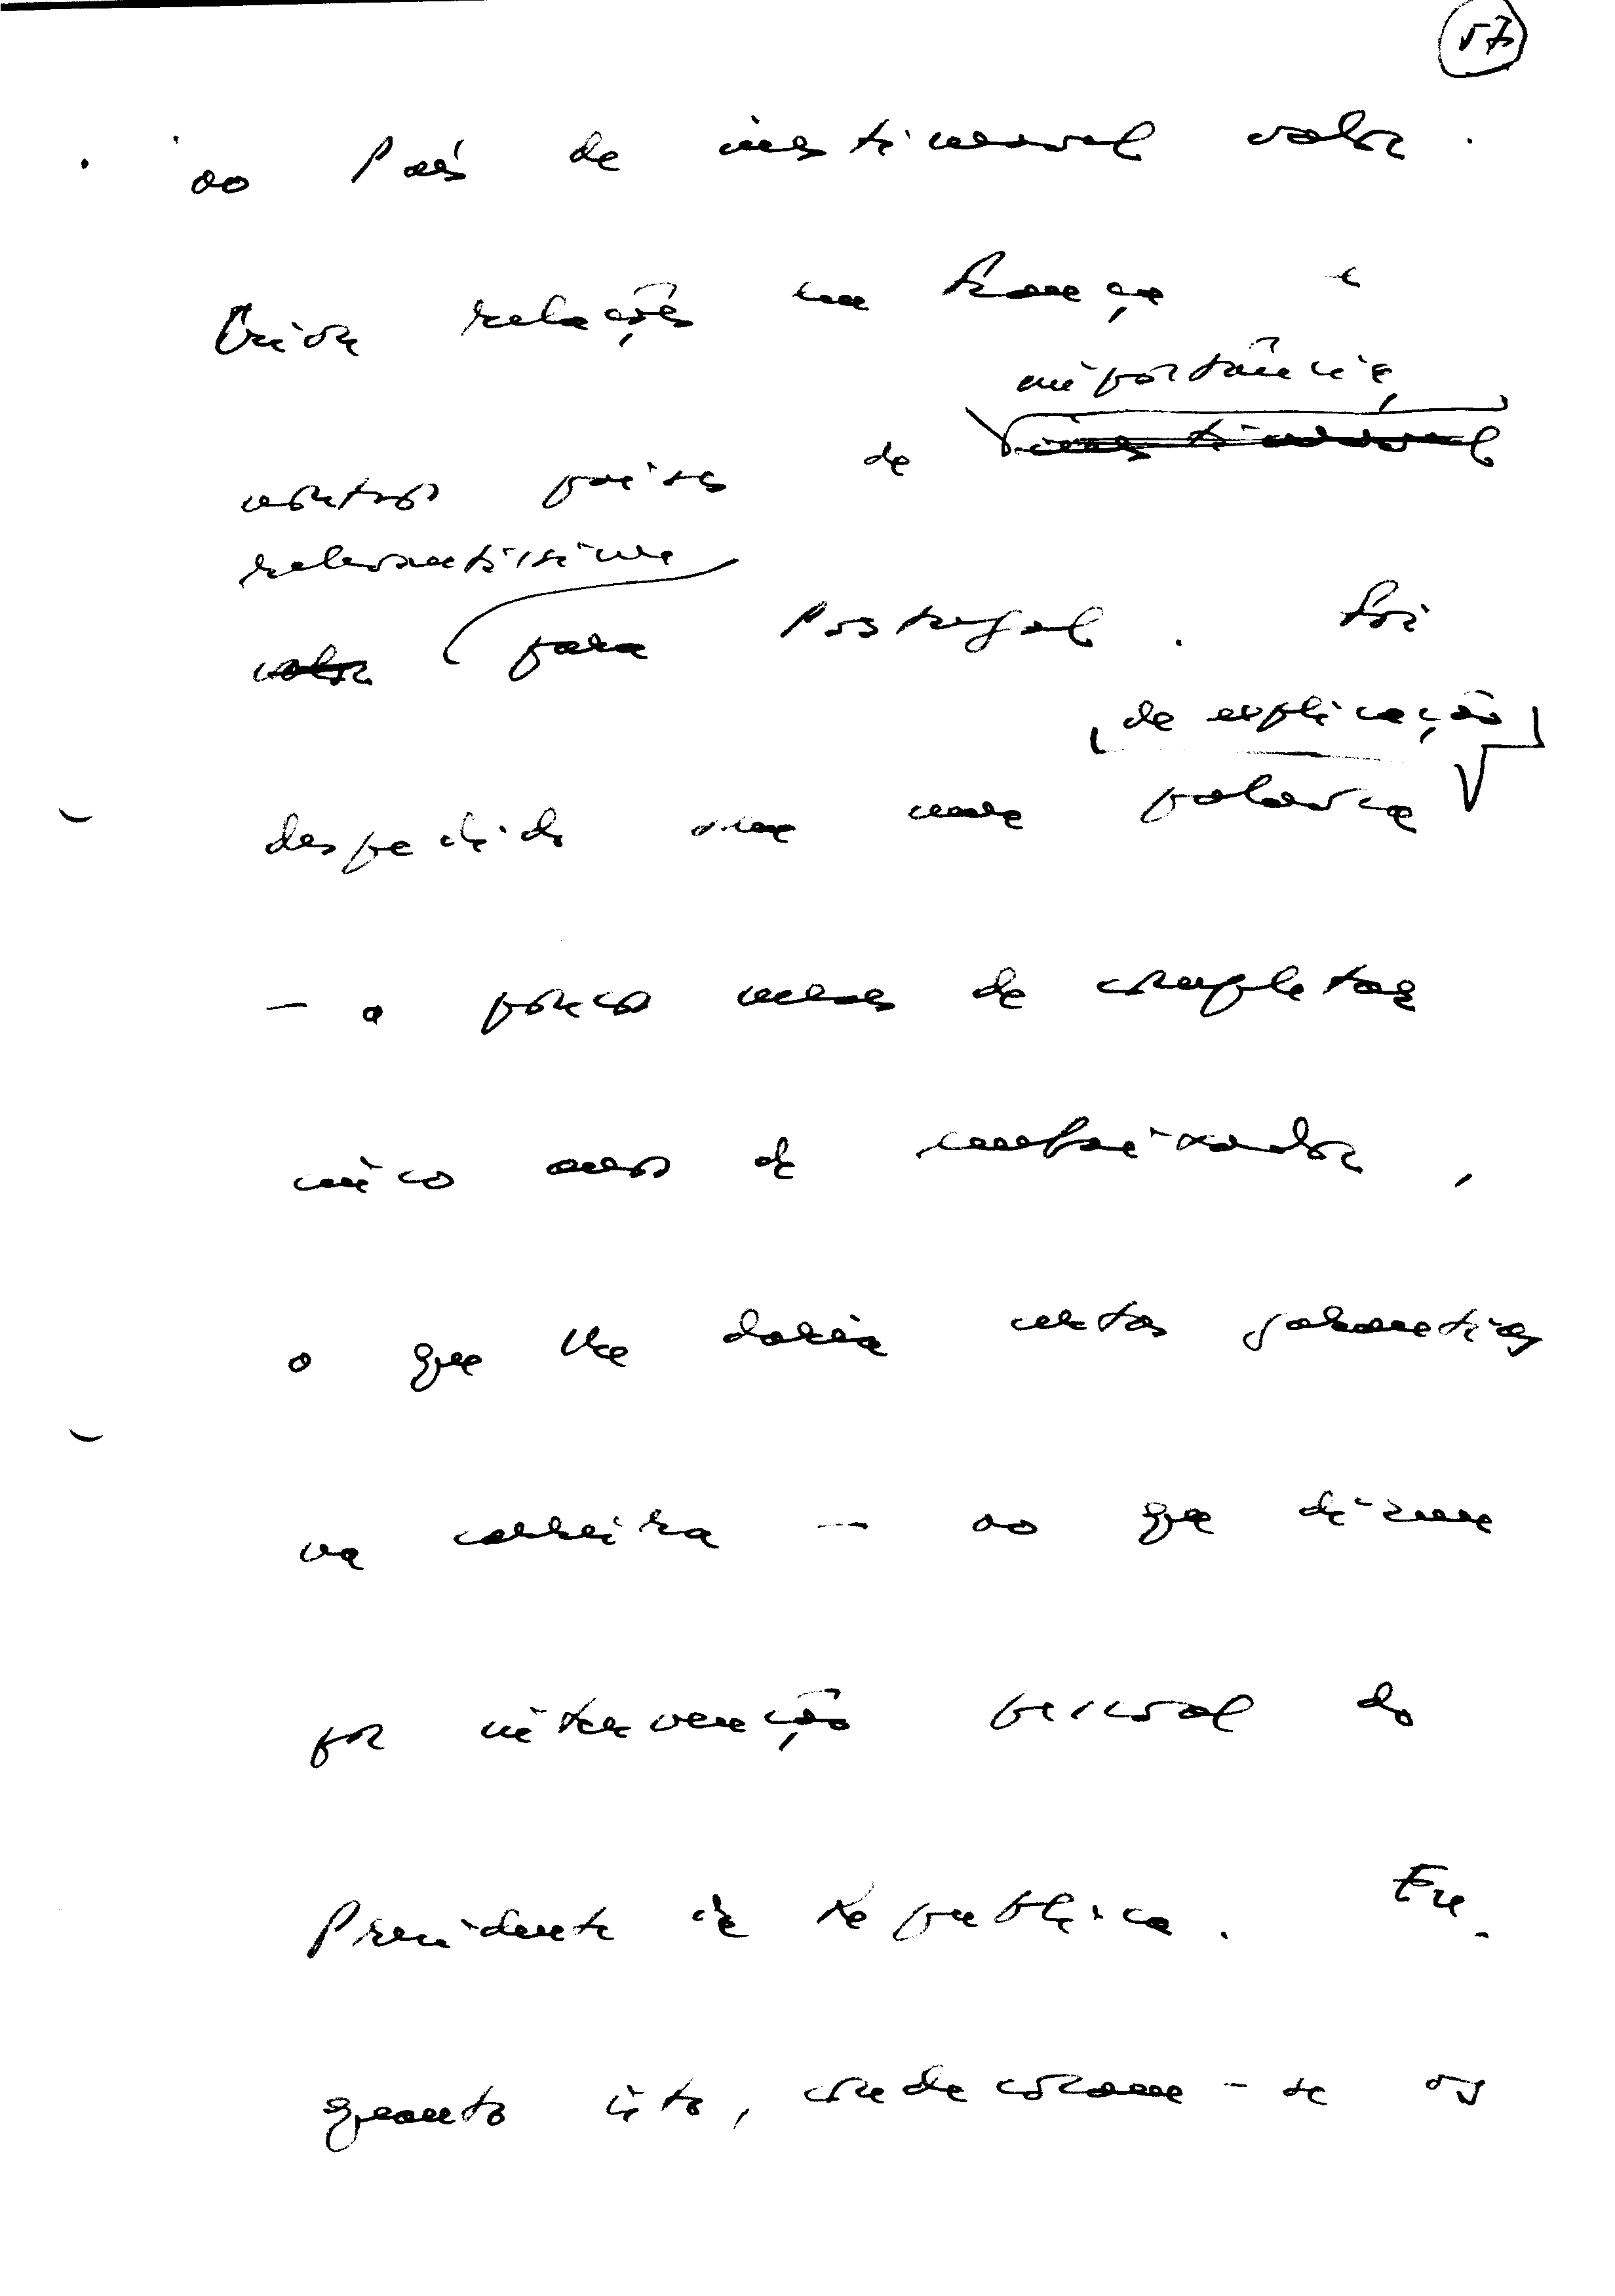 57
ao País de inestimável valor.
Criou relações em França e
importância
noutros países de inestimável
relevantíssima
valor para Portugal. Foi
de explicação
despedido sem uma palavra
— a poucos meses de completar
cinco anos de embaixador,
o que lhe daria certas garantias
na carreira — ao que dizem
por intervenção pessoal do
Presidente da República. En-
quanto isto, condecoram-se os